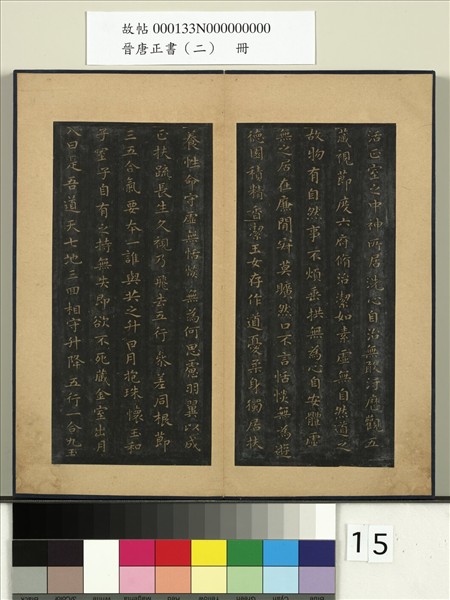 故帖 000133N000000000
晉唐正書（二） 冊
治正室之中神所居洗心自治無敢汙歷觀五
藏視節度六府脩治潔如素虛無自然道之
故物有自然事不煩垂拱無為心自安體虛
無之居在廉間寂莫曠然口不言恬惔無為遊
德園積精香潔玉女存作道憂柔身獨居扶
養性命守虛無恬惔無為何思慮羽翼以成
正扶疏長生久視乃飛去五行參差同根節
三五合氣要本一誰與共之升日月抱珠懷玉和
子室子自有之持無失即欲不死藏金室出月
入日是吾道天七地三回相守升降五行一合九玉
15
Black 3/Color White Magenta Red Yellow Green Cyan Blue